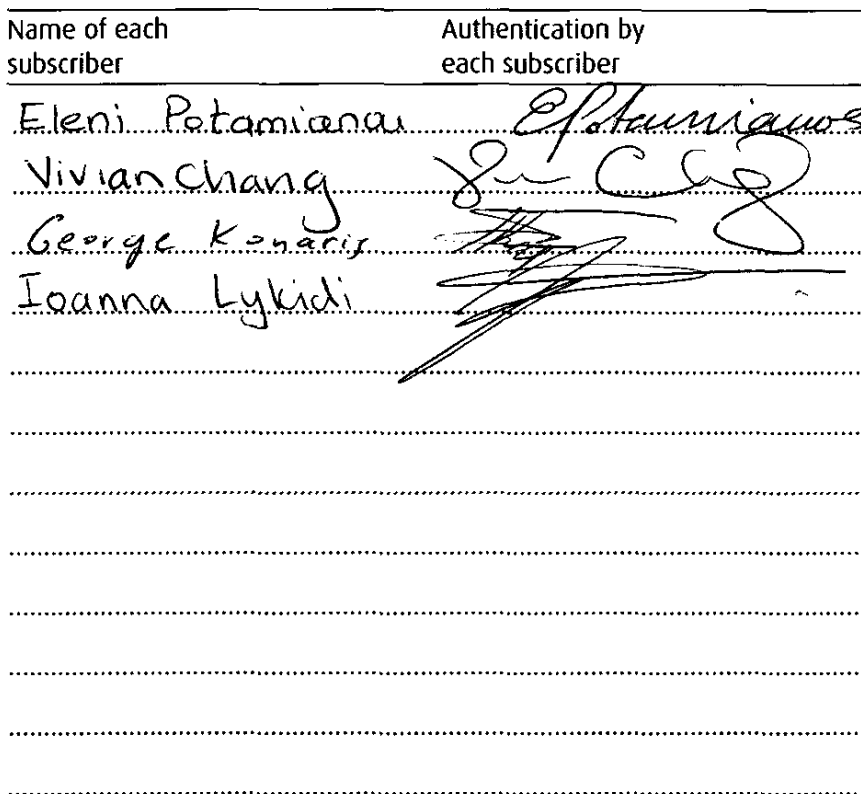 Name of each Authentication by
subscriber each subscriber
Eleni Potamianou EPotamianos
Vivian Chang
George Konaris
Ioanna Lykidi